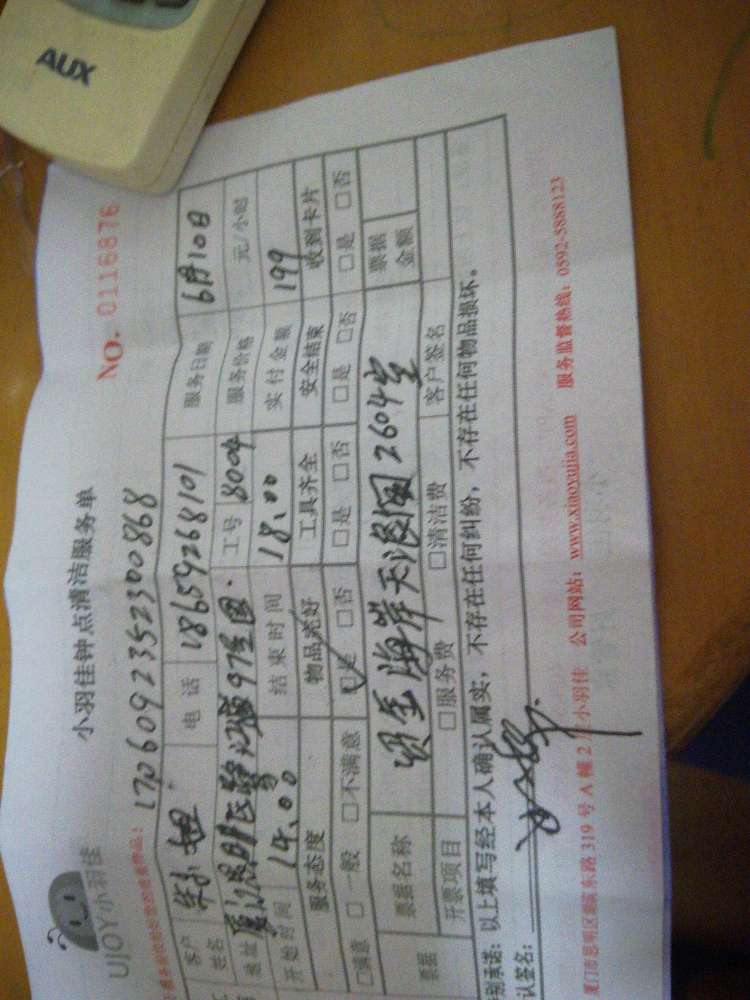 AUX
UJOY小羽佳
小羽佳钟点清洁服务单
NO. 0116876
1706092352300868
客户姓名
电话 18659268101
服务日期 6月10日
地址
工号 8004
服务价格 元/小时
开始时间 14:00
结束时间 18:00
实付金额 199
服务态度 物品完好 工具齐全 安全结束 收到卡片
□满意 □一般 □不满意 ☑是 □否 □是 □否 □是 □否 □是 □否
票据 票据名称 海岸 2604室 票据金额
开票项目 □服务费 □清洁费 客户签名
别承诺：以上填写经本人确认属实，不存在任何纠纷，不存在任何物品损坏。
认签名：
厦门市思明区 东路 319 号 A 幢 2 小羽佳 公司网站：www.xiaoyujia.com 服务监督热线：0592-5888123